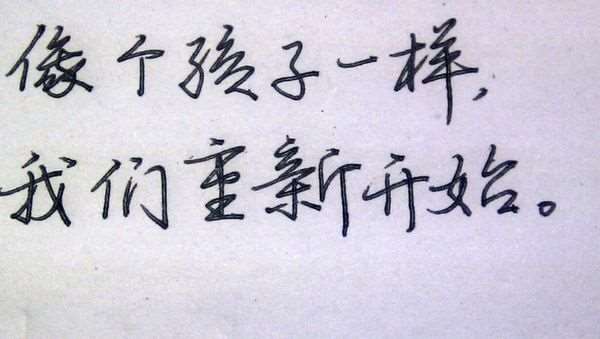 像个孩子一样,
我们重新开始。